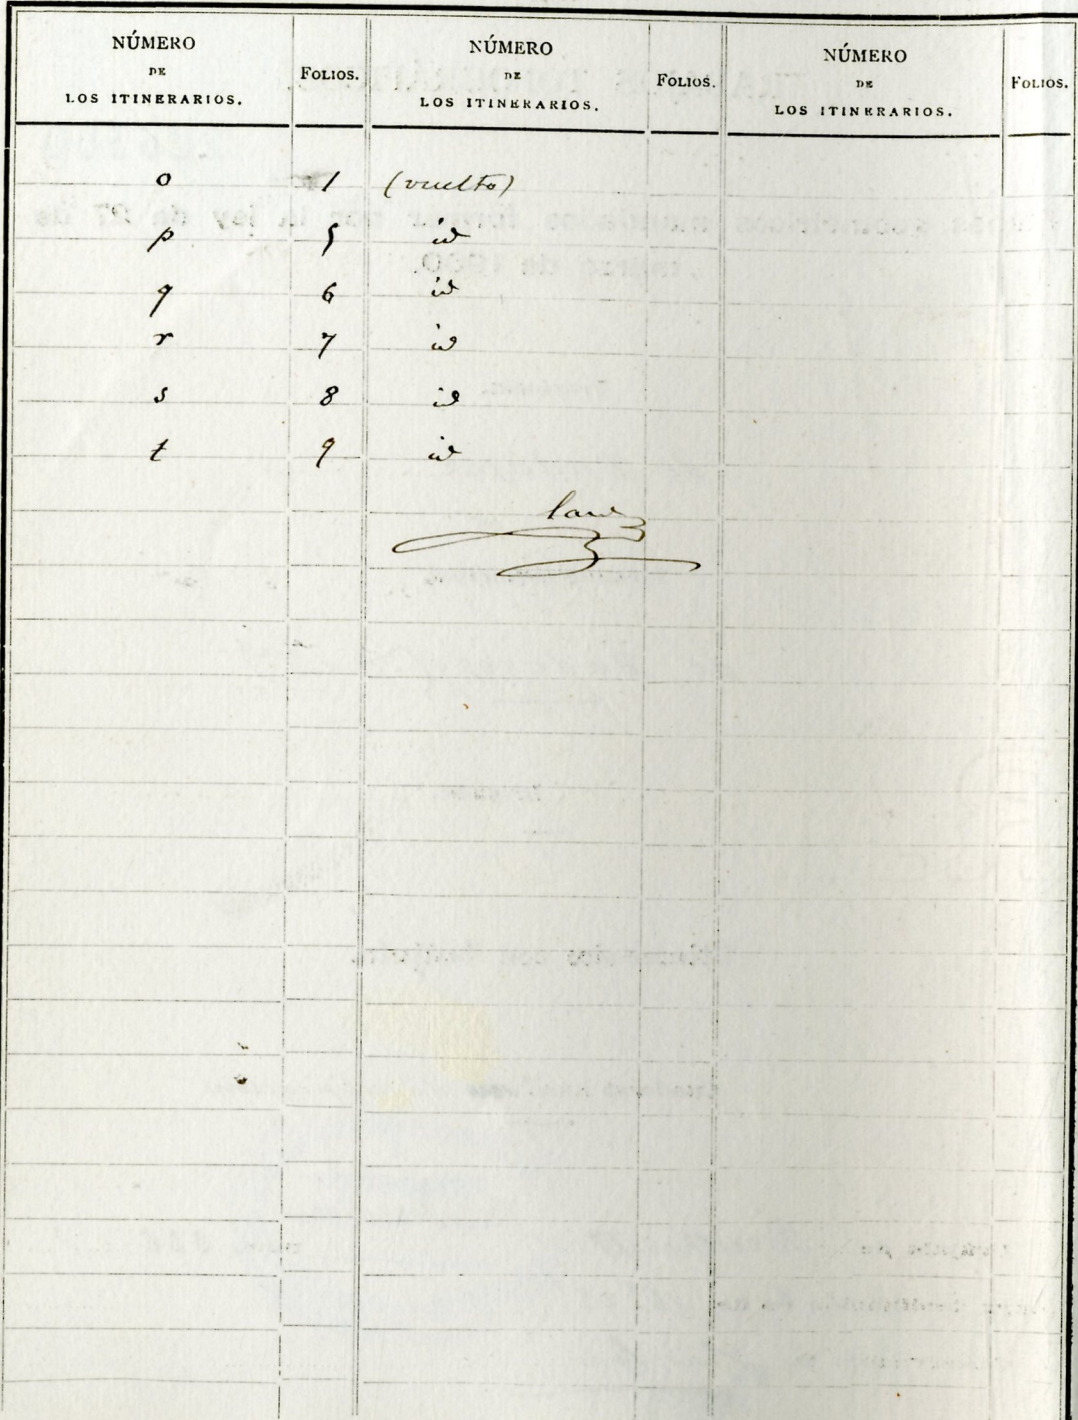 NÚMERO DE LOS ITINERARIOS. FOLIOS. NÚMERO DE LOS ITINERARIOS. FOLIOS. NÚMERO DE LOS ITINERARIOS. FOLIOS.
o 1 (vuelto)
p 5 id
q 6 id
r 7 id
s 8 id
t 9 id